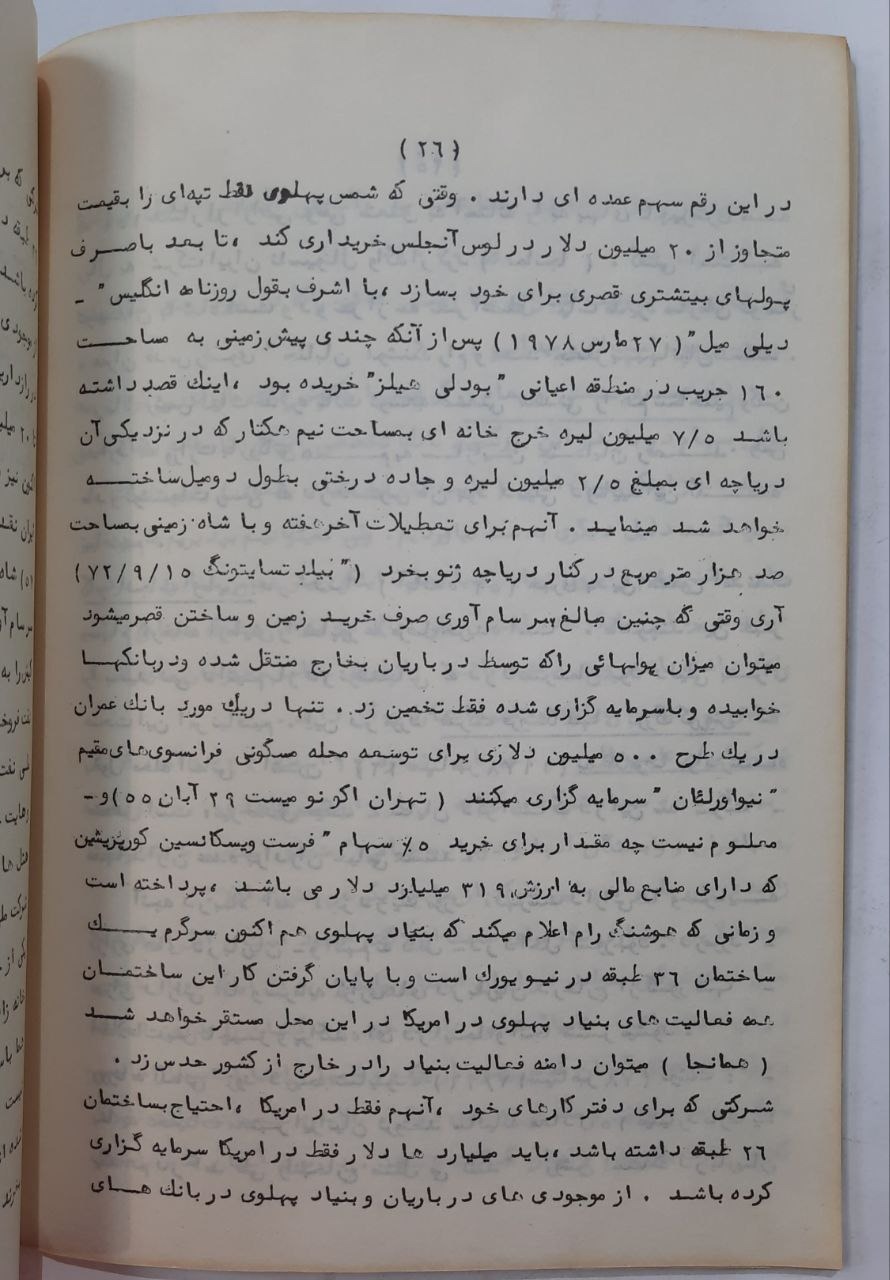 (۲٦)
در این رقم سهم عمده ای دارند . وقتی که شمس پهلوی فقط تپه‌ای را بقیمت
متجاوز از ۲۰ میلیون دلار در لوس آنجلس خریداری کند ، تا بعد باصرف
پولهای بیتشتری قصری برای خود بسازد ، با اشرف بقول روزنامه انگلیس " -
دیلی میل " ( ۲۷ مارس ۱۹۷۸ ) پس از آنکه چندی پیش زمینی به مساحت
۱٦۰ جریب در منطقه اعیانی " بودلی هیلز " خریده بود ، اینك قصد داشته
باشد ۷/۵ میلیون لیره خرج خانه ای بمساحت نیم هکتار که در نزدیکی آن
دریاچه ای بمبلغ ۲/۵ میلیون لیره و جاده درختی بطول دومیل ساخته
خواهد شد مینماید . آنهم برای تعطیلات آخرهفته و با شاه زمینی بمساحت
صد هزار متر مربع در کنار دریاچه ژنو بخرد ( " بیلد تسایتونگ ۷۲/۹/۱۵ )
آری وقتی که چنین مبالغ سر سام آوری صرف خرید زمین و ساختن قصر میشود
میتوان میزان پولهائی راکه توسط درباریان بخارج منتقل شده ودربانکها
خوابیده و باسرمایه گزاری شده فقط تخمین زد . تنها دریك مورد بانك عمران
در یك طرح ۵۰۰ میلیون دلاری برای توسعه محله مسگونی فرانسوی‌های مقیم
" نیواورلئان " سرمایه گزاری میکنند ( تهران اکونومیست ۲۹ آبان ۵۵ ) و -
معلوم نیست چه مقدار برای خرید ۵٪ سهام " فرست ویسکانسین کورپریشین
که دارای منابع مالی به ارزش ۳۱۹ میلیارد دلار می باشد ، پرداخته است
و زمانی که هوشنگ رام اعلام میکند که بنیاد پهلوی هم اکنون سرگرم یك
ساختمان ۳٦ طبقه در نیویورك است و با پایان گرفتن کار این ساختمان
همه فعالیت های بنیاد پهلوی در امریکا در این محل مستقر خواهد شد
( همانجا ) میتوان دامنه فعالیت بنیاد رادر خارج از کشور حدس زد .
شرکتی که برای دفتر کارهای خود ، آنهم فقط در امریکا ، احتیاج بساختمان
۲٦ طبقه داشته باشد ، باید میلیارد ها دلار فقط در امریکا سرمایه گزاری
کرده باشد . از موجودی های درباریان و بنیاد پهلوی در بانك های